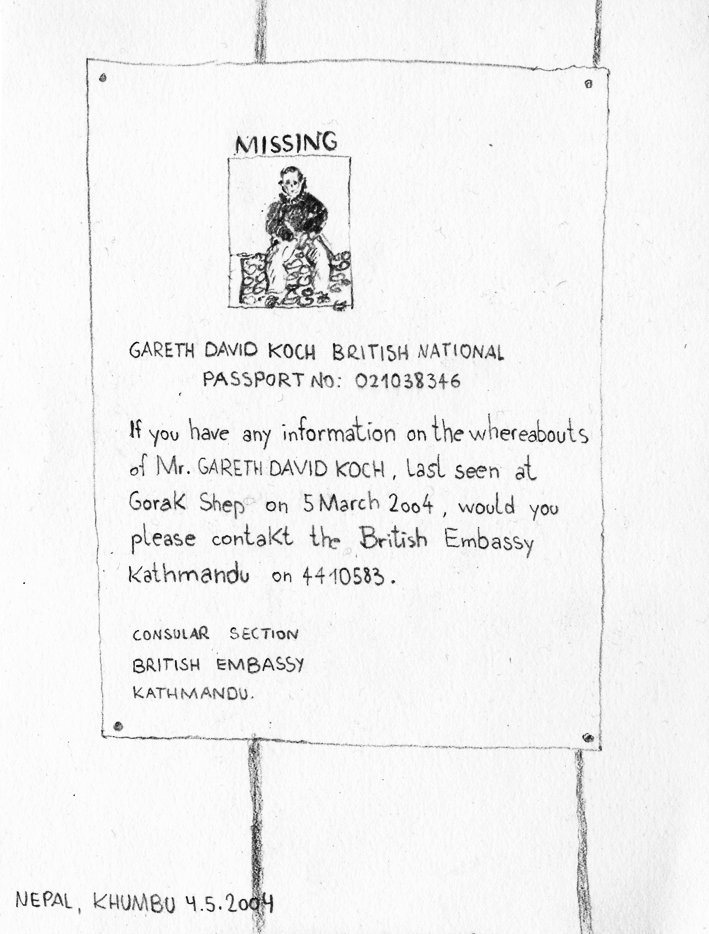 MISSING
GARETH DAVID KOCH BRITISH NATIONAL
PASSPORT NO: 021038346
If you have any information on the whereabouts
of Mr. GARETH DAVID KOCH, last seen at
Gorak Shep on 5 March 2004, would you
please contakt the British Embassy
Kathmandu on 4410583.
CONSULAR SECTION
BRITISH EMBASSY
KATHMANDU.
NEPAL, KHUMBU 4.5.2004